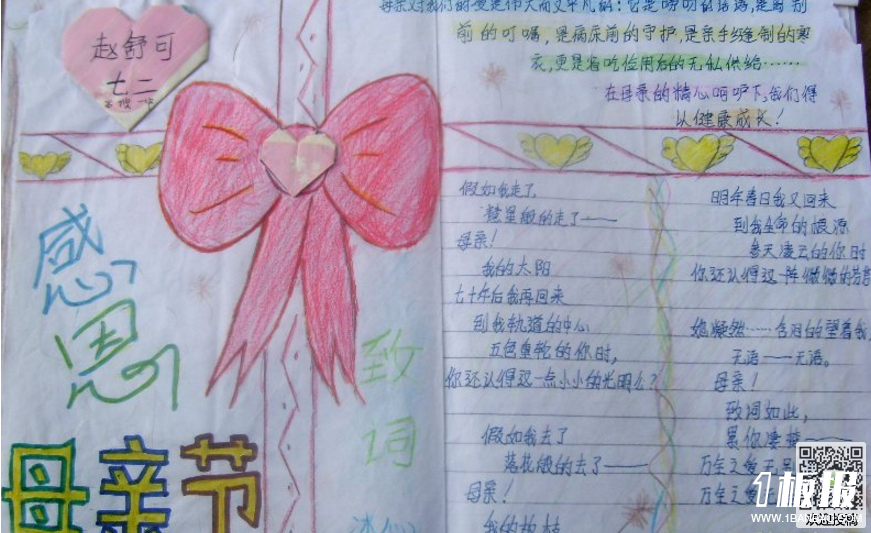 赵舒可
七二
母亲对我们的爱是伟大而又平凡的：它是唠叨的话语，是离别
前的叮嘱，是病床前的守护，是亲手缝制的寒
衣，更是省吃俭用后的无私供给……
在母亲的精心呵护下，我们得
以健康成长！
感恩
母亲节
致词
冰心
假如我走了，
彗星般的走了——
母亲！
我的太阳
七十年后我再回来
到我轨道的中心
五色重轮的你时，
你还认得这一点小小的光明么？
假如我去了
落花般的去了——
母亲！
我的故枝
明年春日我又回来
到我生命的根源
参天凌云的你时
你还认得这一阵微微的芳
她凝然……含泪的望着我，
无语——无语。
母亲！
致词如此，
累你凄楚——
万全之爱无
万全之爱无
1板报
WWW.1BANBAO.COM
欢迎投稿